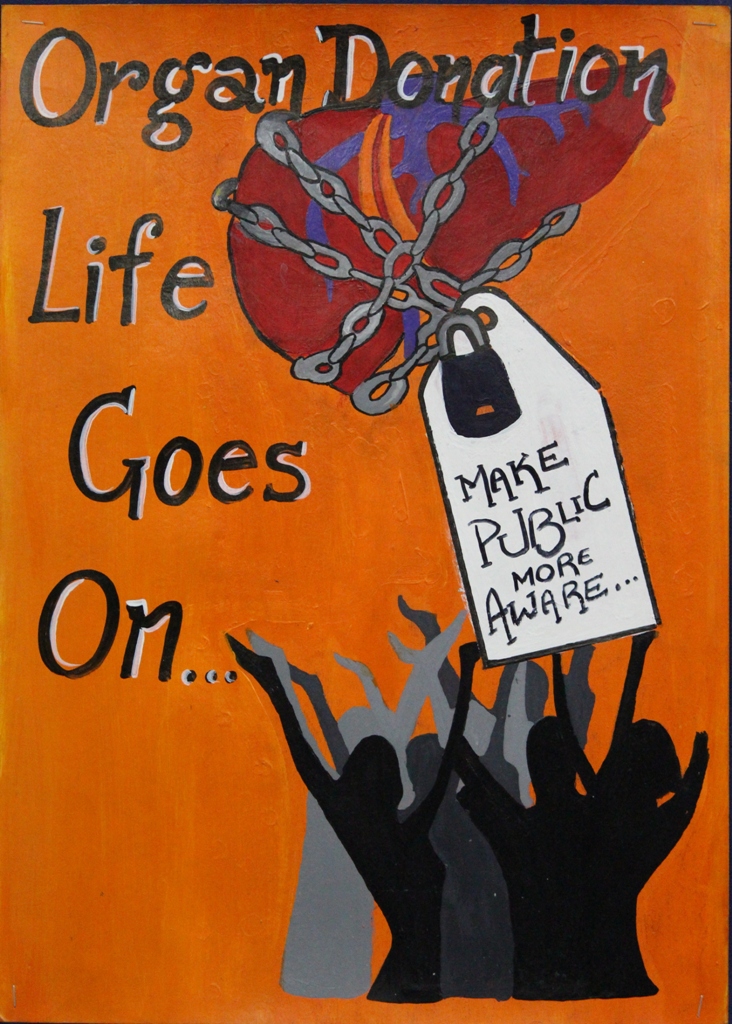 Organ Donation
Life
Goes
On...
MAKE
PUBLIC
MORE
AWARE...